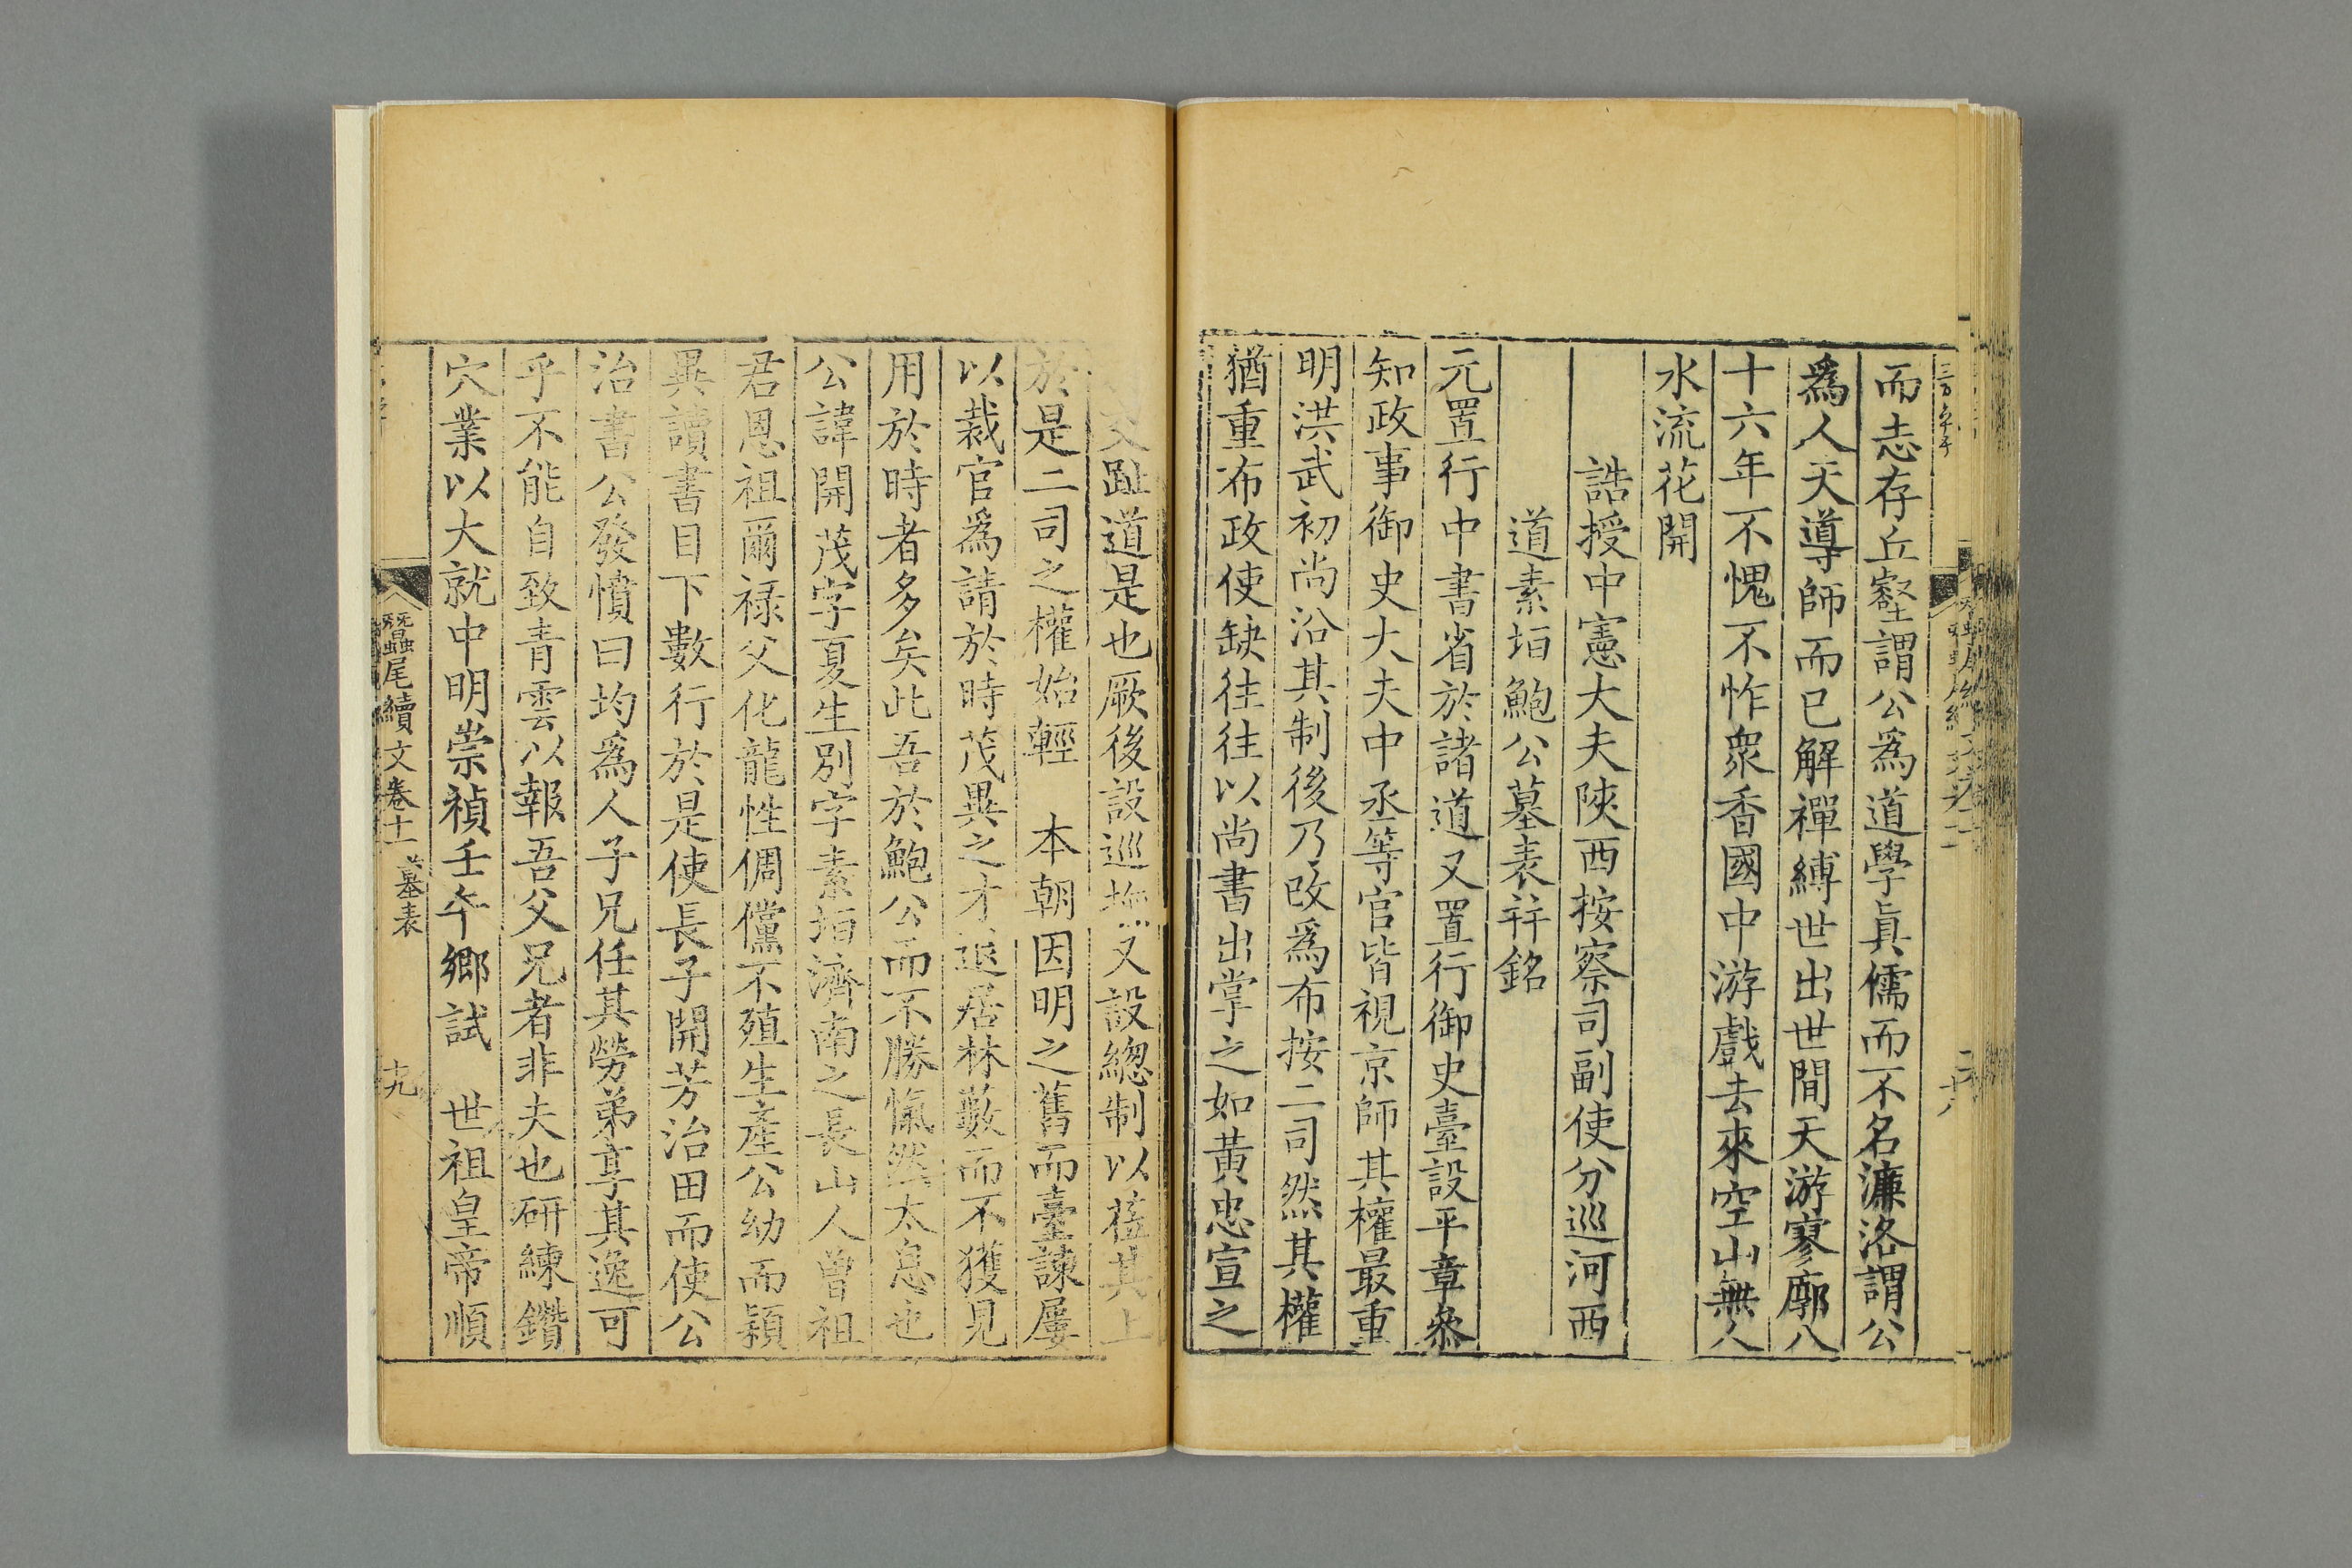 而志存丘壑謂公爲道學眞儒而不名濂洛謂公
爲人天導師而已解禪縛世出世間天游寥廓八
十六年不愧不怍衆香國中游戲去來空山無人
水流花開
誥授中憲大夫陝西按察司副使分巡河西
道素垣鮑公墓表幷銘
元置行中書省於諸道又置行御史臺設平章叅
知政事御史大夫中丞等官皆視京師其權最重
明洪武初尚沿其制後乃改爲布按二司然其權
猶重布政使缺往往以尚書出掌之如黃忠宣之
交趾道是也厥後設巡撫又設總制以蒞其上
於是二司之權始輕　本朝因明之舊而臺諫屢
以裁官爲請於時茂異之才退居林藪而不獲見
用於時者多矣此吾於鮑公而不勝愾然太息也
公諱開茂字夏生別字素垣濟南之長山人曾祖
君恩祖爾祿父化龍性倜儻不殖生產公幼而穎
異讀書目下數行於是使長子開芳治田而使公
治書公發憤曰均爲人子兄任其勞弟享其逸可
乎不能自致青雲以報吾父兄者非夫也研練鑽
穴業以大就中明崇禎壬午鄉試　世祖皇帝順
蠶尾續文卷十一　墓表　十九